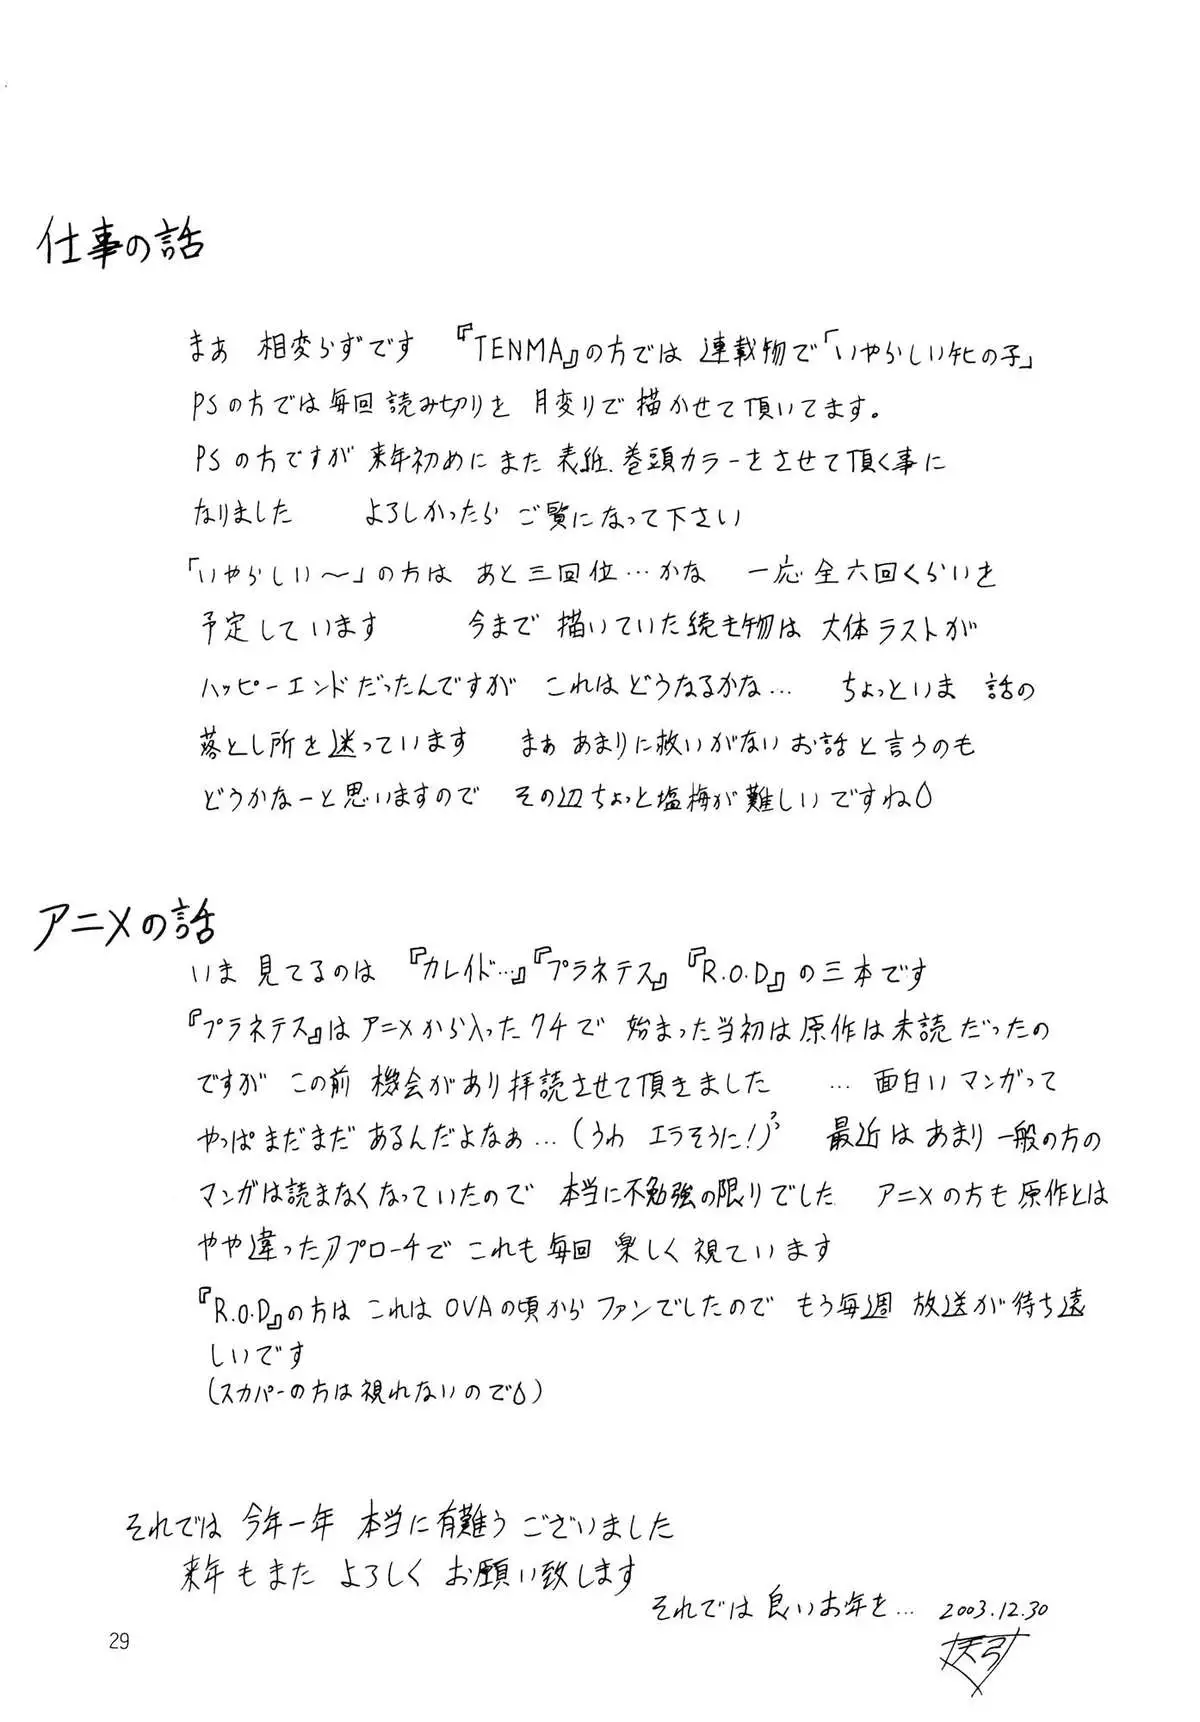 仕事の話
まあ 相変らずです 『TENMA』の方では 連載物で「いやらしい牝の子」
PSの方では毎回読み切りを 月変りで描かせて頂いてます。
PSの方ですが来年初めにまた表紙.巻頭カラーをさせて頂く事に
なりました よろしかったら ご覧になって下さい
「いやらしい〜」の方は あと三回位…かな 一応全六回くらいを
予定しています 今まで描いていた続き物は 大体ラストが
ハッピーエンドだったんですが これはどうなるかな… ちょっといま 話の
落とし所を迷っています まぁあまりに救いがないお話と言うのも
どうかなーと思いますので その辺ちょっと塩梅が難しいですね
アニメの話
いま 見てるのは 『カレイド…』『プラネテス』『R.O.D』の三本です
『プラネテス』はアニメから入ったクチで 始まった当初は原作は未読だったの
ですが この前 機会があり拝読させて頂きました … 面白いマンガって
やっぱまだまだあるんだよなぁ…(うわ エラそうに!) 最近はあまり一般の方の
マンガは読まなくなっていたので 本当に不勉強の限りでした アニメの方も原作とは
やや違ったアプローチで これも毎回 楽しく視ています
『R.O.D』の方は これはOVAの頃からファンでしたので もう毎週 放送が待ち遠
しいです
(スカパーの方は視れないので)
それでは 今年一年 本当に有難うございました
来年もまた よろしく お願い致します
それでは良いお年を… 2003.12.30
29